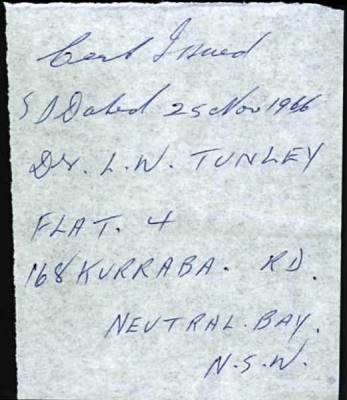 Cert Issued
S D Dated 25 Nov 1966
Dr. L.W. TUNLEY
FLAT. 4
168 KURRABA. RD.
NEUTRAL. BAY.
N.S.W.